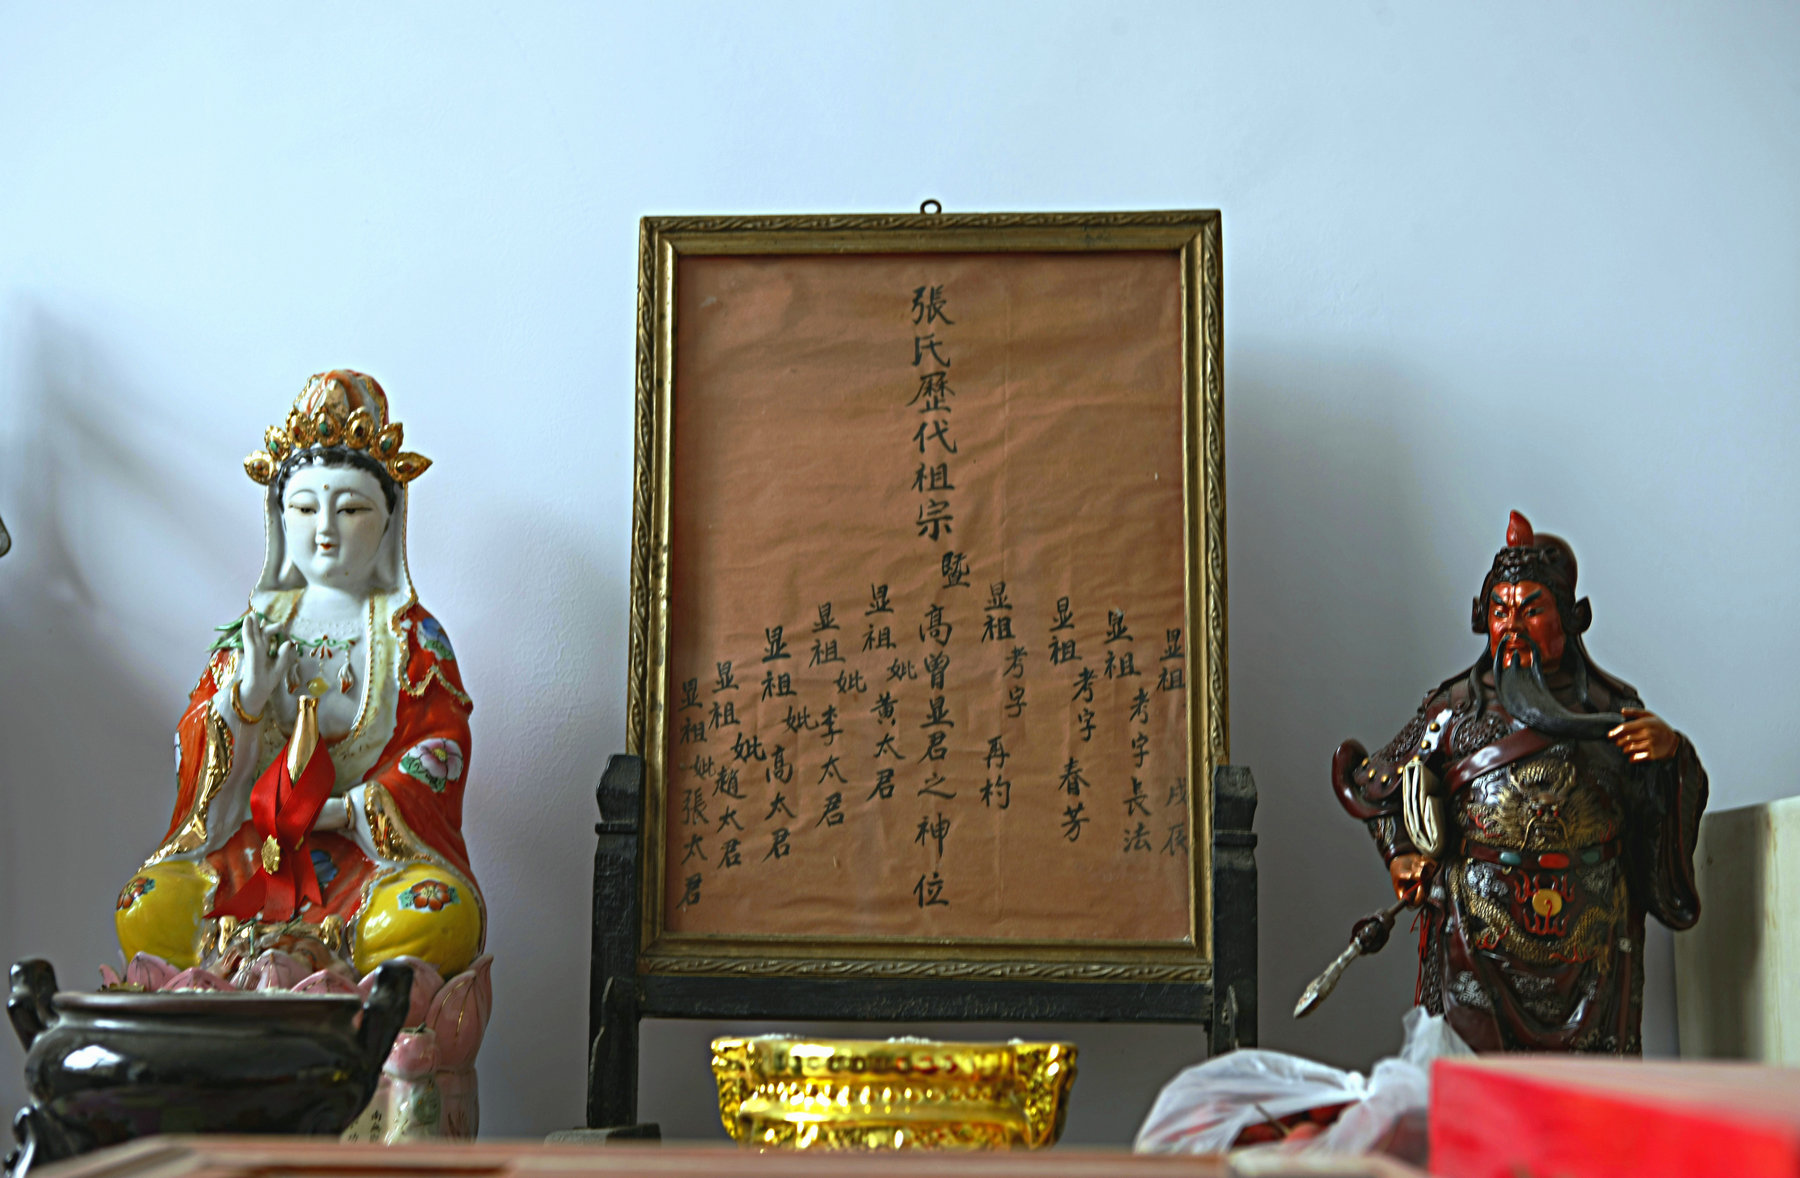 显祖 戌辰
显祖考字長法
显祖考字春芳
显祖考字再杓
張氏歷代祖宗暨高曾显君之神位
显祖妣黄太君
显祖妣李太君
显祖妣高太君
显祖妣趙太君
显祖妣張太君
南無